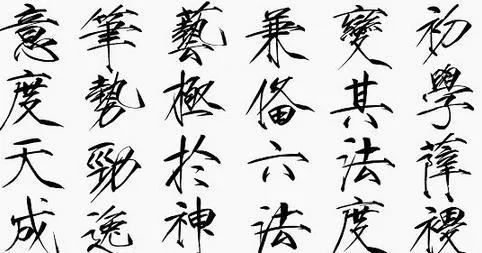 初學薛稷
變其法度
兼備六法
藝極於神
筆勢勁逸
意度天成